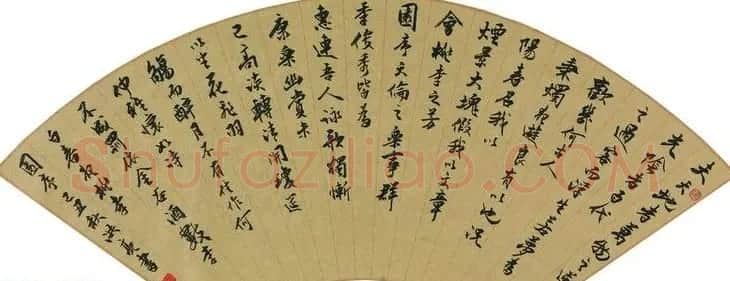 夫天地者萬物之逆
旅光陰者百代
之過客而浮生若夢為
歡幾何古人
秉燭夜遊良有以也況
陽春召我以
煙景大塊假我以文章
會桃李之芳
園序天倫之樂事群
季俊秀皆為
惠連吾人詠歌獨慚
康樂幽賞未
已高談轉清開瓊筵
以坐花飛羽
觴而醉月不有佳作何
伸雅懷如詩
不成罰依金谷酒數李
白春夜宴桃李
園序 己丑秋洪亮書
Shufaziliao.com